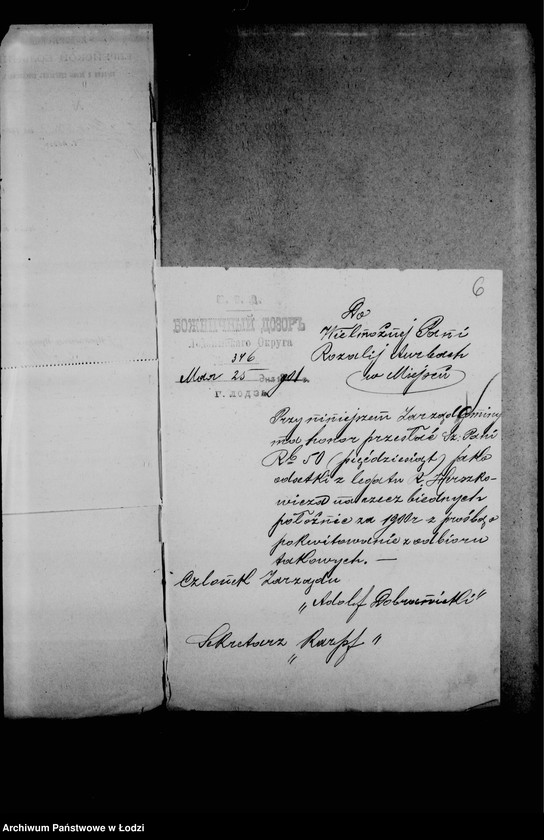 6
БОЖНИЧНЫЙ ДОЗОРЪ
Округа
346
Мая 25 1901
г. Лодзь
Do
Wielmożnej Pani
Rozalji Auerbach
w Miejscu
Przy niniejszem Zarząd Gminy
ma honor przesłać Sz. Pani
Rb 50 (pięćdziesiąt) jako
odsetki z legatu R. Herszko-
wicza na rzecz biednych
położnic za 1900r z prośbą o
pokwitowanie z odbioru
takowych. —
Członek Zarządu
„Adolf Dobranicki"
Sekretarz
„Karpf"
Archiwum Państwowe w Łodzi